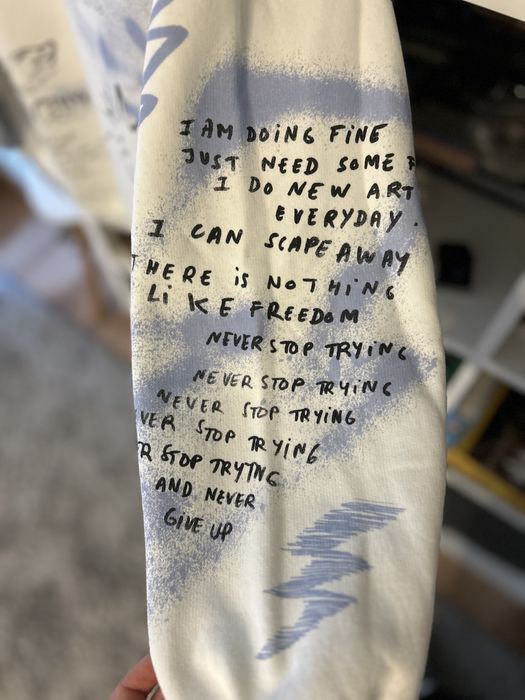 I AM DOING FINE
JUST NEED SOME
I DO NEW ART
EVERYDAY.
I CAN SCAPE AWAY
THERE iS NOTHiNG
LiKE FREEDOM
NEVER STOP TRYiNG
NEVER STOP TRYiNG
NEVER STOP TRYiNG
VER STOP TRYiNG
R STOP TRYING
AND NEVER
GiVE UP